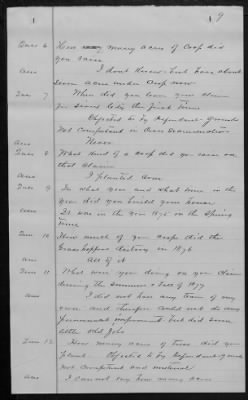 9
Ques 6 How many acres of Crop did
you raise
Ans I dont Know - but have about
acres under Crop now
Ques 7 When did you leave your claim
for Sioux City the first time
Objected to by Defendant - Grounds
Not Competent in Cross Examination
Ans Never
Ques 8 What Kind of a Crop did you raise on
that Claim
Ans I planted Corn
Ques 9 In what year and what time in the
year did you build your house
Ans It was in the Year 1876 in the Spring
time
Ques 10 How much of your crops did the
Grasshoppers destroy in 1876
Ans All of it
Ques 11 What were you doing on your Claim
during the Summer & Fall of 1877
Ans I did not have any team of my
own and therefore could not do any
permanent improvements but did some
little odd Jobs
Ques 12 How many acres of trees did you
plant - Objected to by Defendant
Not Competent and material
Ans I can not say how many acres